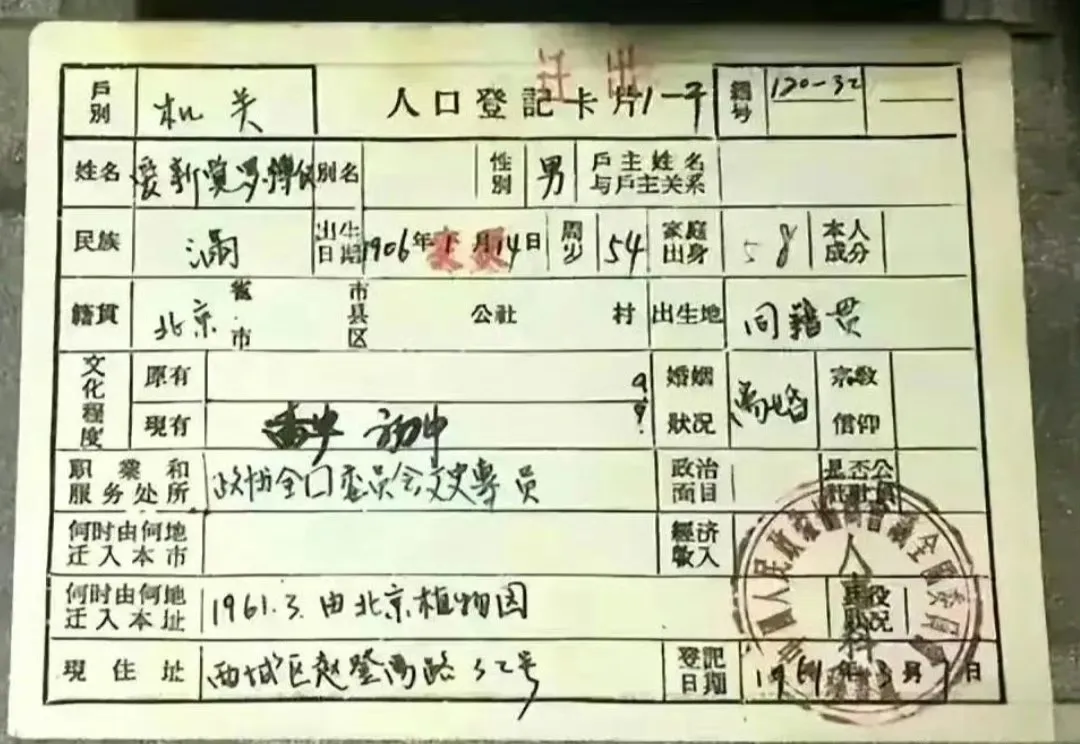 迁出
戶別 机关 人口登記卡片 1—平 編号 120-32
姓名 爱新觉罗溥仪 別名 性別 男 戶主姓名与戶主关系
民族 满 出生日期 1906年1月14日 周岁 54 家庭出身 58 本人成分
籍貫 北京 省市 市县区 公社 村 出生地 同籍贯
文化程度 原有 婚姻狀况 离婚 宗敎信仰
現有 高中 初中
职業和服务处所 政协全囗委员会文史專员 政治面目 是否公社社員
何时由何地迁入本市 經济收入
何时由何地迁入本址 1961.3.由北京植物园
現住址 西城区赵登禹路32号 登記日期 1961年3月7日
中國人民政治協商會議全國委員會
人事科